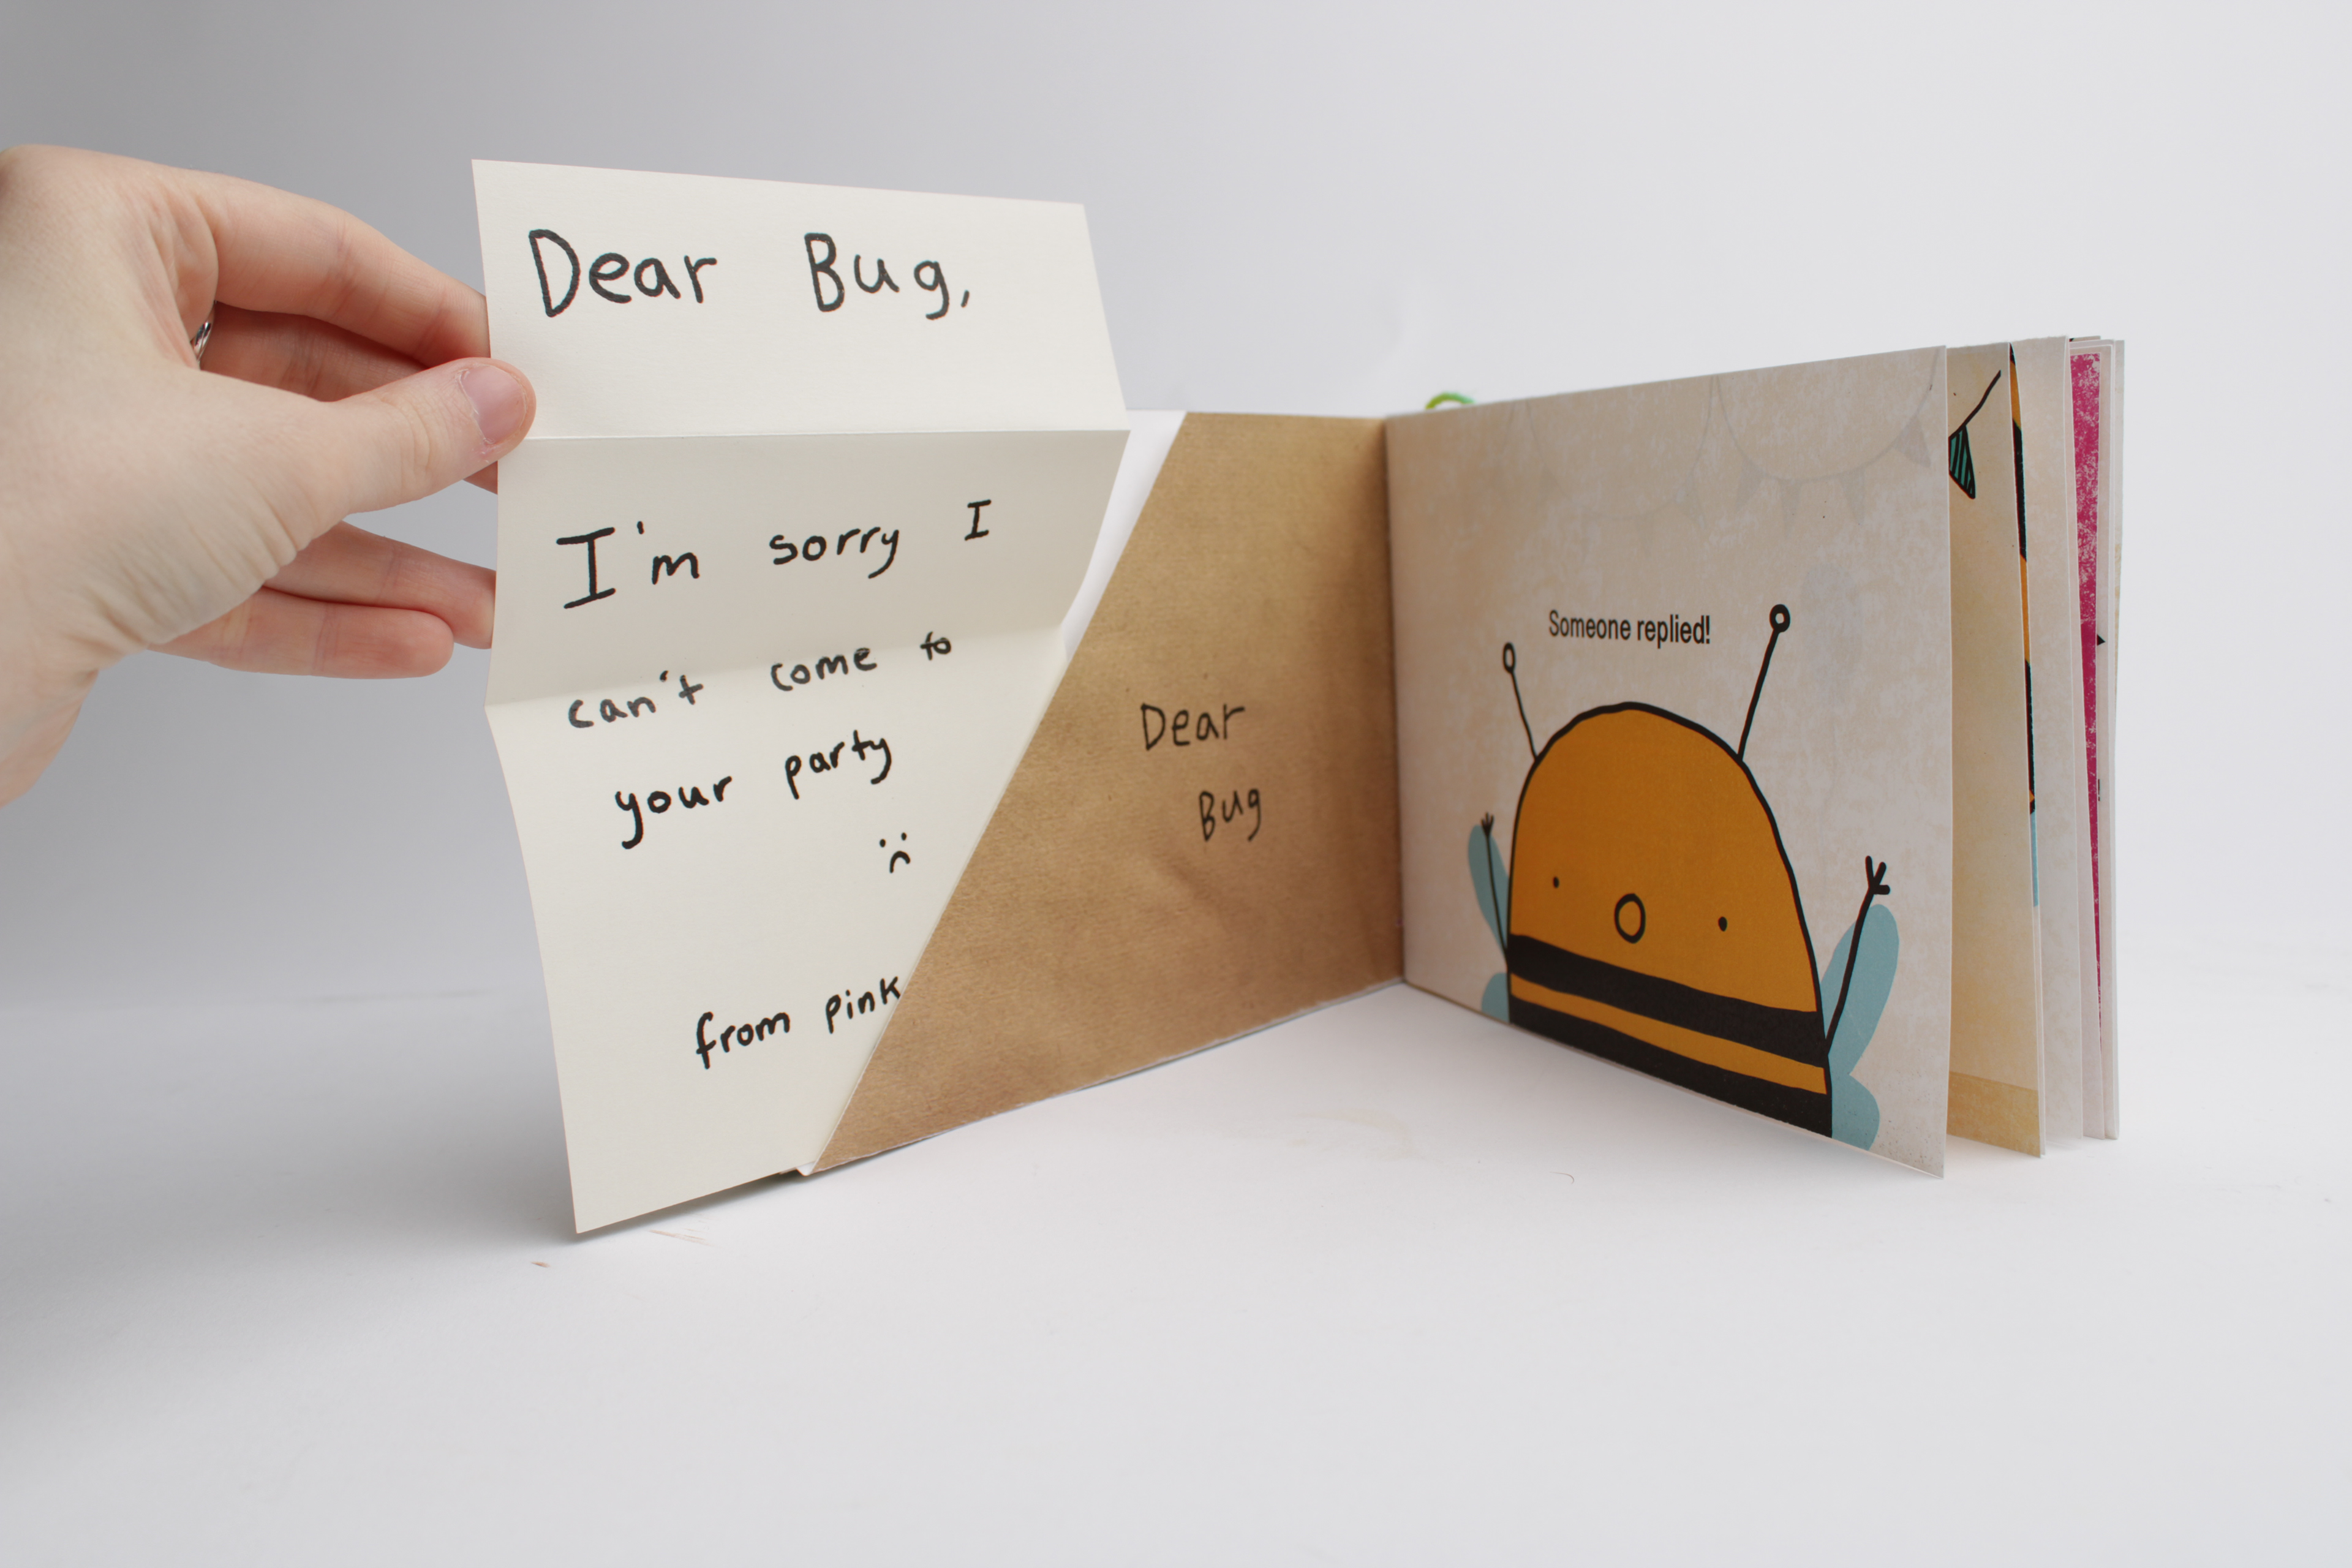 Dear Bug,
I'm sorry I
can't come to
your party
:(
from pink
Dear
Bug
Someone replied!